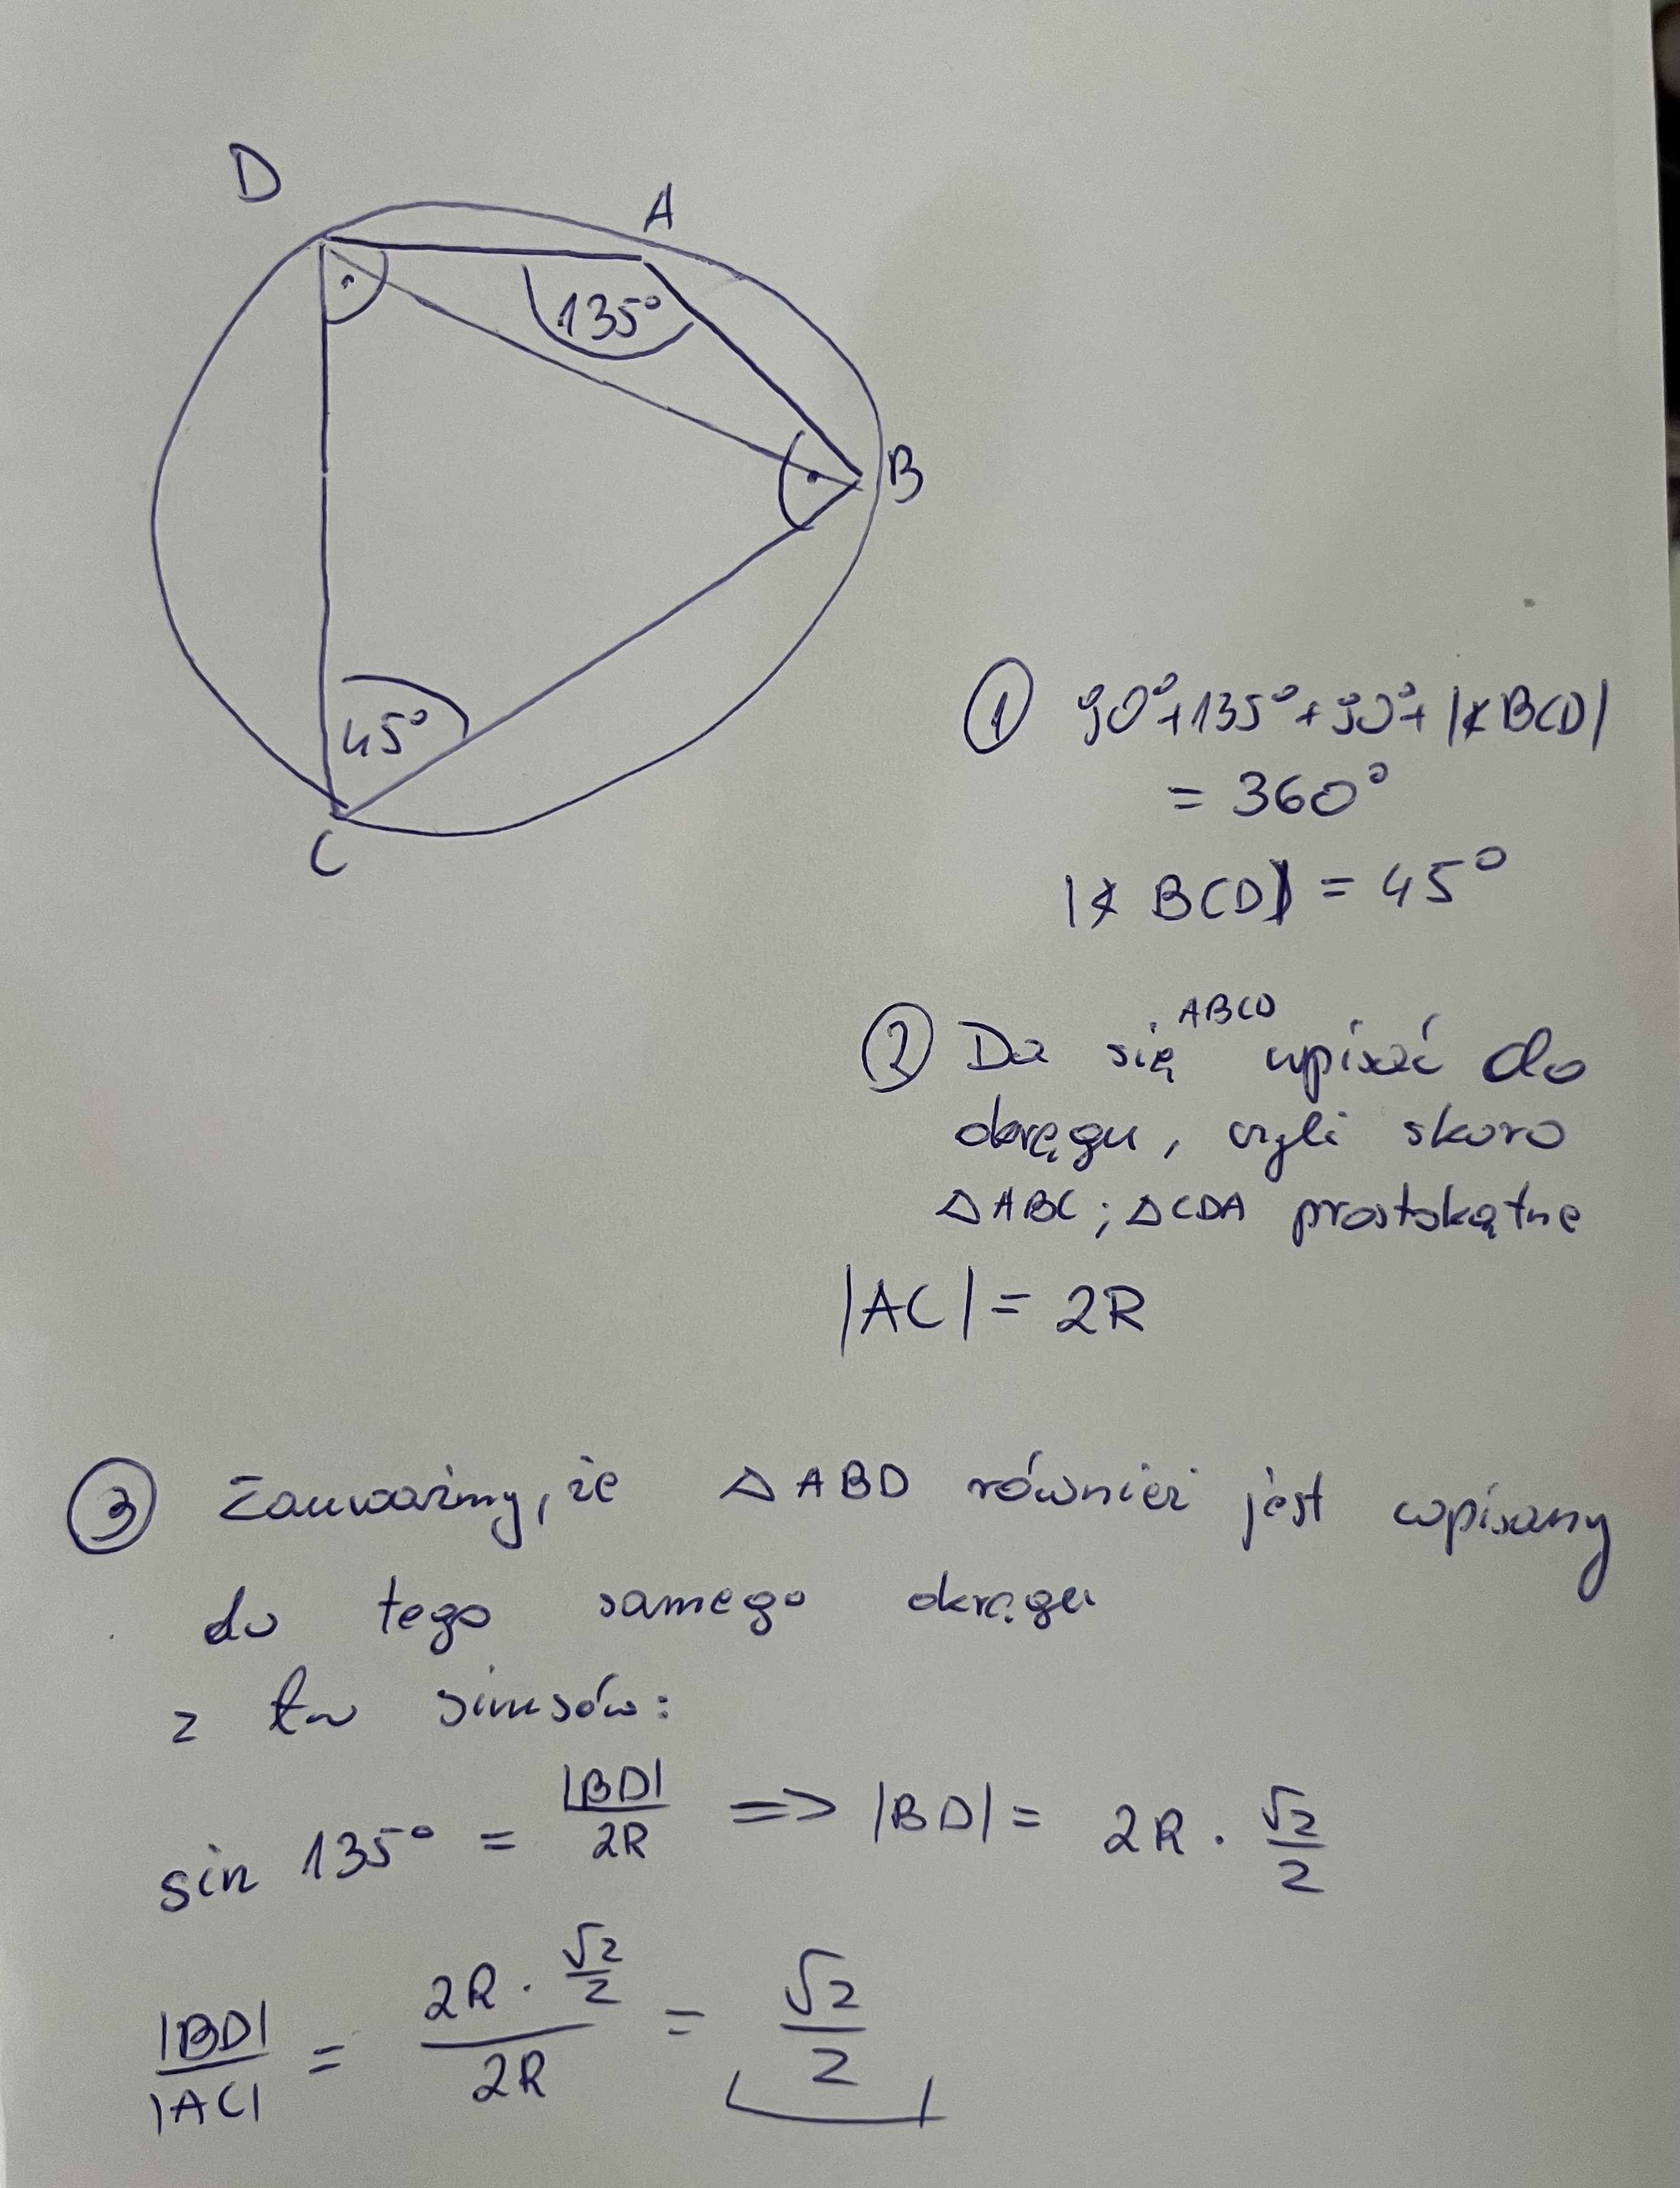 D
A
135°
B
45°
C
① 90°+135°+90°+|∢BCD|
= 360°
|∢BCD| = 45°
ABCD
② Da się wpisać do
okręgu, czyli skoro
△ABC; △CDA prostokątne
|AC| = 2R
③ Zauważmy, że △ABD również jest wpisany
do tego samego okręgu
z tw sinusów:
sin 135° = |BD|/2R => |BD| = 2R · √2/2
|BD|/|AC| = (2R · √2/2)/2R = √2/2